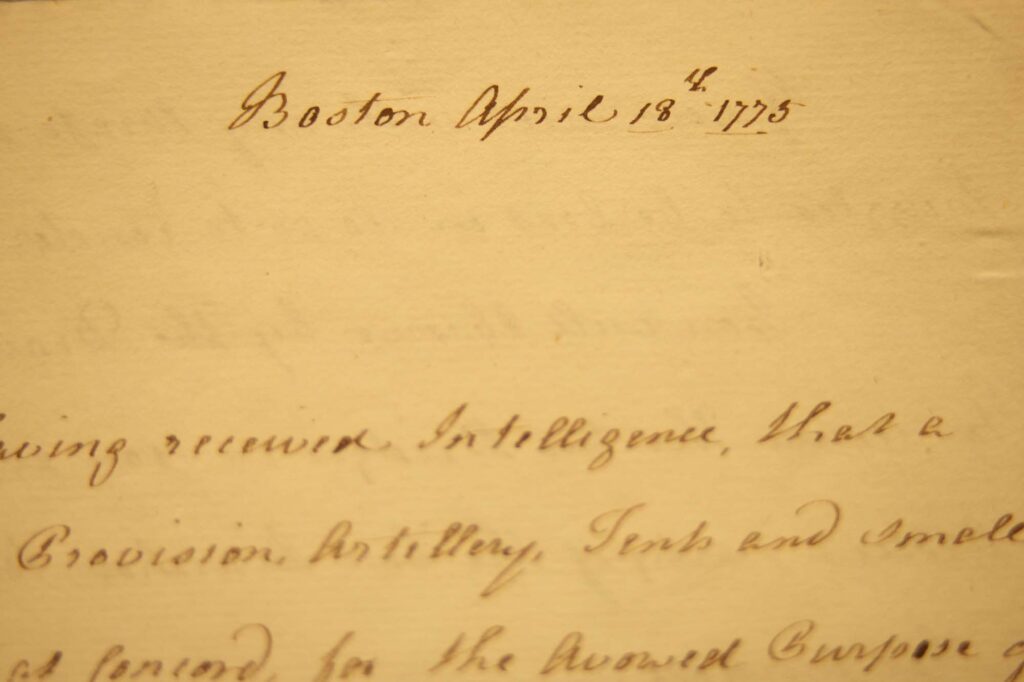 Boston April 18th 1775
aving received Intelligence, that a
Provision, Artillery, Tents and small
at Concord, for the Avowed Purpose